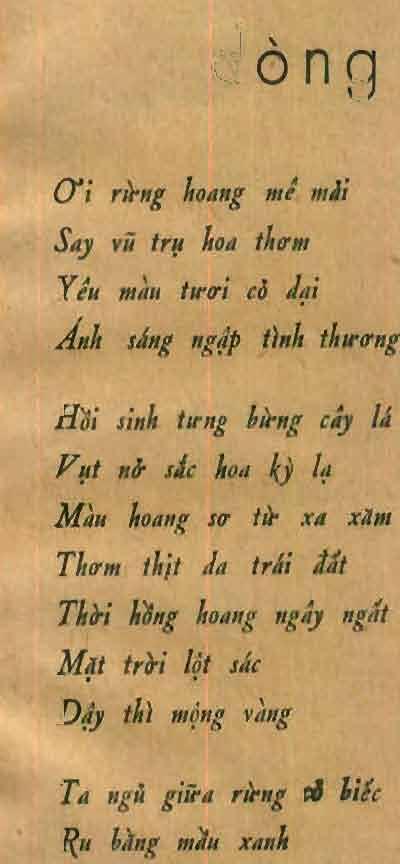 òng
Ơi rừng hoang mê mải
Say vũ trụ hoa thơm
Yêu màu tươi cỏ dại
Ánh sáng ngập tình thương
Hồi sinh tưng bừng cây lá
Vụt nở sắc hoa kỳ lạ
Màu hoang sơ từ xa xăm
Thơm thịt da trái đất
Thời hồng hoang ngây ngất
Mặt trời lột sác
Dậy thì mộng vàng
Ta ngủ giữa rừng biếc
Ru bằng mầu xanh